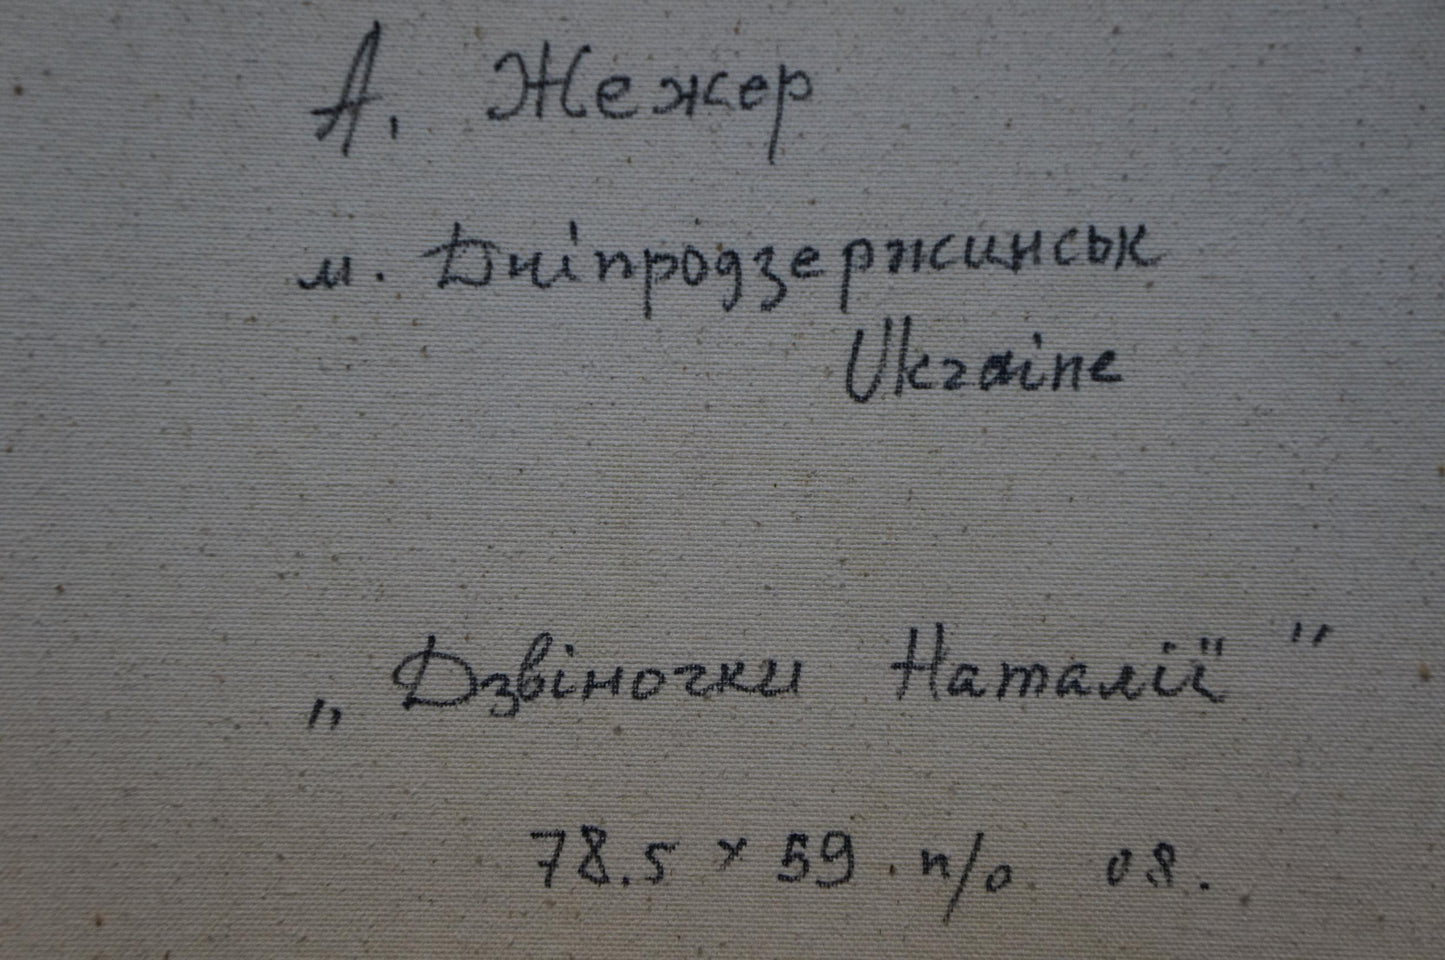 А. Жежер
м. Дніпродзержинськ
Ukraine
„Дзвіночки Наталії"
78.5 × 59. п/о 08.